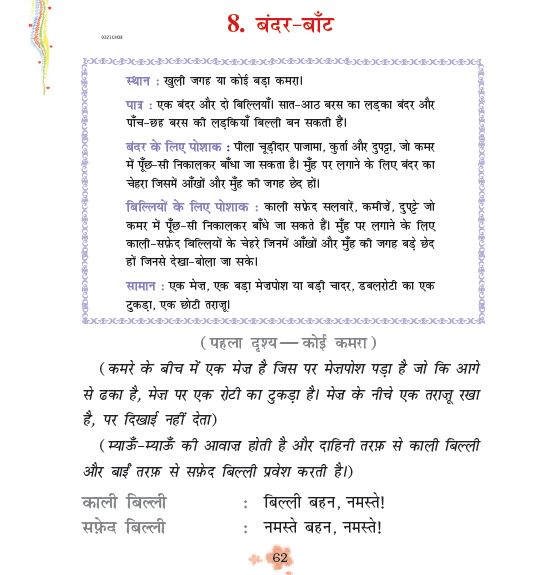 8. बंदर-बाँट
0321CH08
स्थान : खुली जगह या कोई बड़ा कमरा।
पात्र : एक बंदर और दो बिल्लियाँ। सात-आठ बरस का लड़का बंदर और
पाँच-छह बरस की लड़कियाँ बिल्ली बन सकती हैं।
बंदर के लिए पोशाक : पीला चूड़ीदार पाजामा, कुर्ता और दुपट्टा, जो कमर
में पूँछ-सी निकालकर बाँधा जा सकता है। मुँह पर लगाने के लिए बंदर का
चेहरा जिसमें आँखों और मुँह की जगह छेद हों।
बिल्लियों के लिए पोशाक : काली सफ़ेद सलवारें, कमीजें, दुपट्टे जो
कमर में पूँछ-सी निकालकर बाँधे जा सकते हैं। मुँह पर लगाने के लिए
काली-सफ़ेद बिल्लियों के चेहरे जिनमें आँखों और मुँह की जगह बड़े छेद
हों जिनसे देखा-बोला जा सके।
सामान : एक मेज़, एक बड़ा मेज़पोश या बड़ी चादर, डबलरोटी का एक
टुकड़ा, एक छोटी तराज़ू।
(पहला दृश्य — कोई कमरा)
(कमरे के बीच में एक मेज़ है जिस पर मेज़पोश पड़ा है जो कि आगे
से ढका है, मेज़ पर एक रोटी का टुकड़ा है। मेज़ के नीचे एक तराज़ू रखा
है, पर दिखाई नहीं देता)
(म्याऊँ-म्याऊँ की आवाज़ होती है और दाहिनी तरफ़ से काली बिल्ली
और बाईं तरफ़ से सफ़ेद बिल्ली प्रवेश करती है।)
काली बिल्ली : बिल्ली बहन, नमस्ते!
सफ़ेद बिल्ली : नमस्ते बहन, नमस्ते!
62